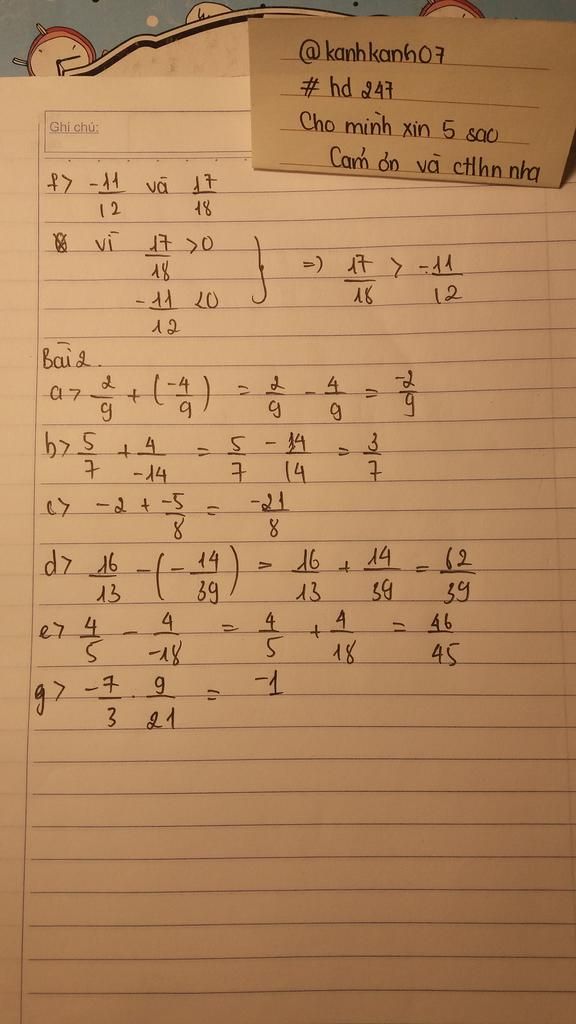 @kanhkanh07
# hd 247
Cho mình xin 5 sao
Cảm ơn và ctlhn nha
Ghi chú:
f> -11/12 và 17/18
vì 17/18 >0
-11/12 <0
=> 17/18 > -11/12
Bài 2.
a> 2/9 + (-4/9) = 2/9 - 4/9 = -2/9
b> 5/7 + 4/-14 = 5/7 - 4/14 = 3/7
c> -2 + -5/8 = -21/8
d> 16/13 - (-14/39) = 16/13 + 14/39 = 62/39
e> 4/5 - 4/-18 = 4/5 + 4/18 = 46/45
g> -7/3 . 9/21 = -1